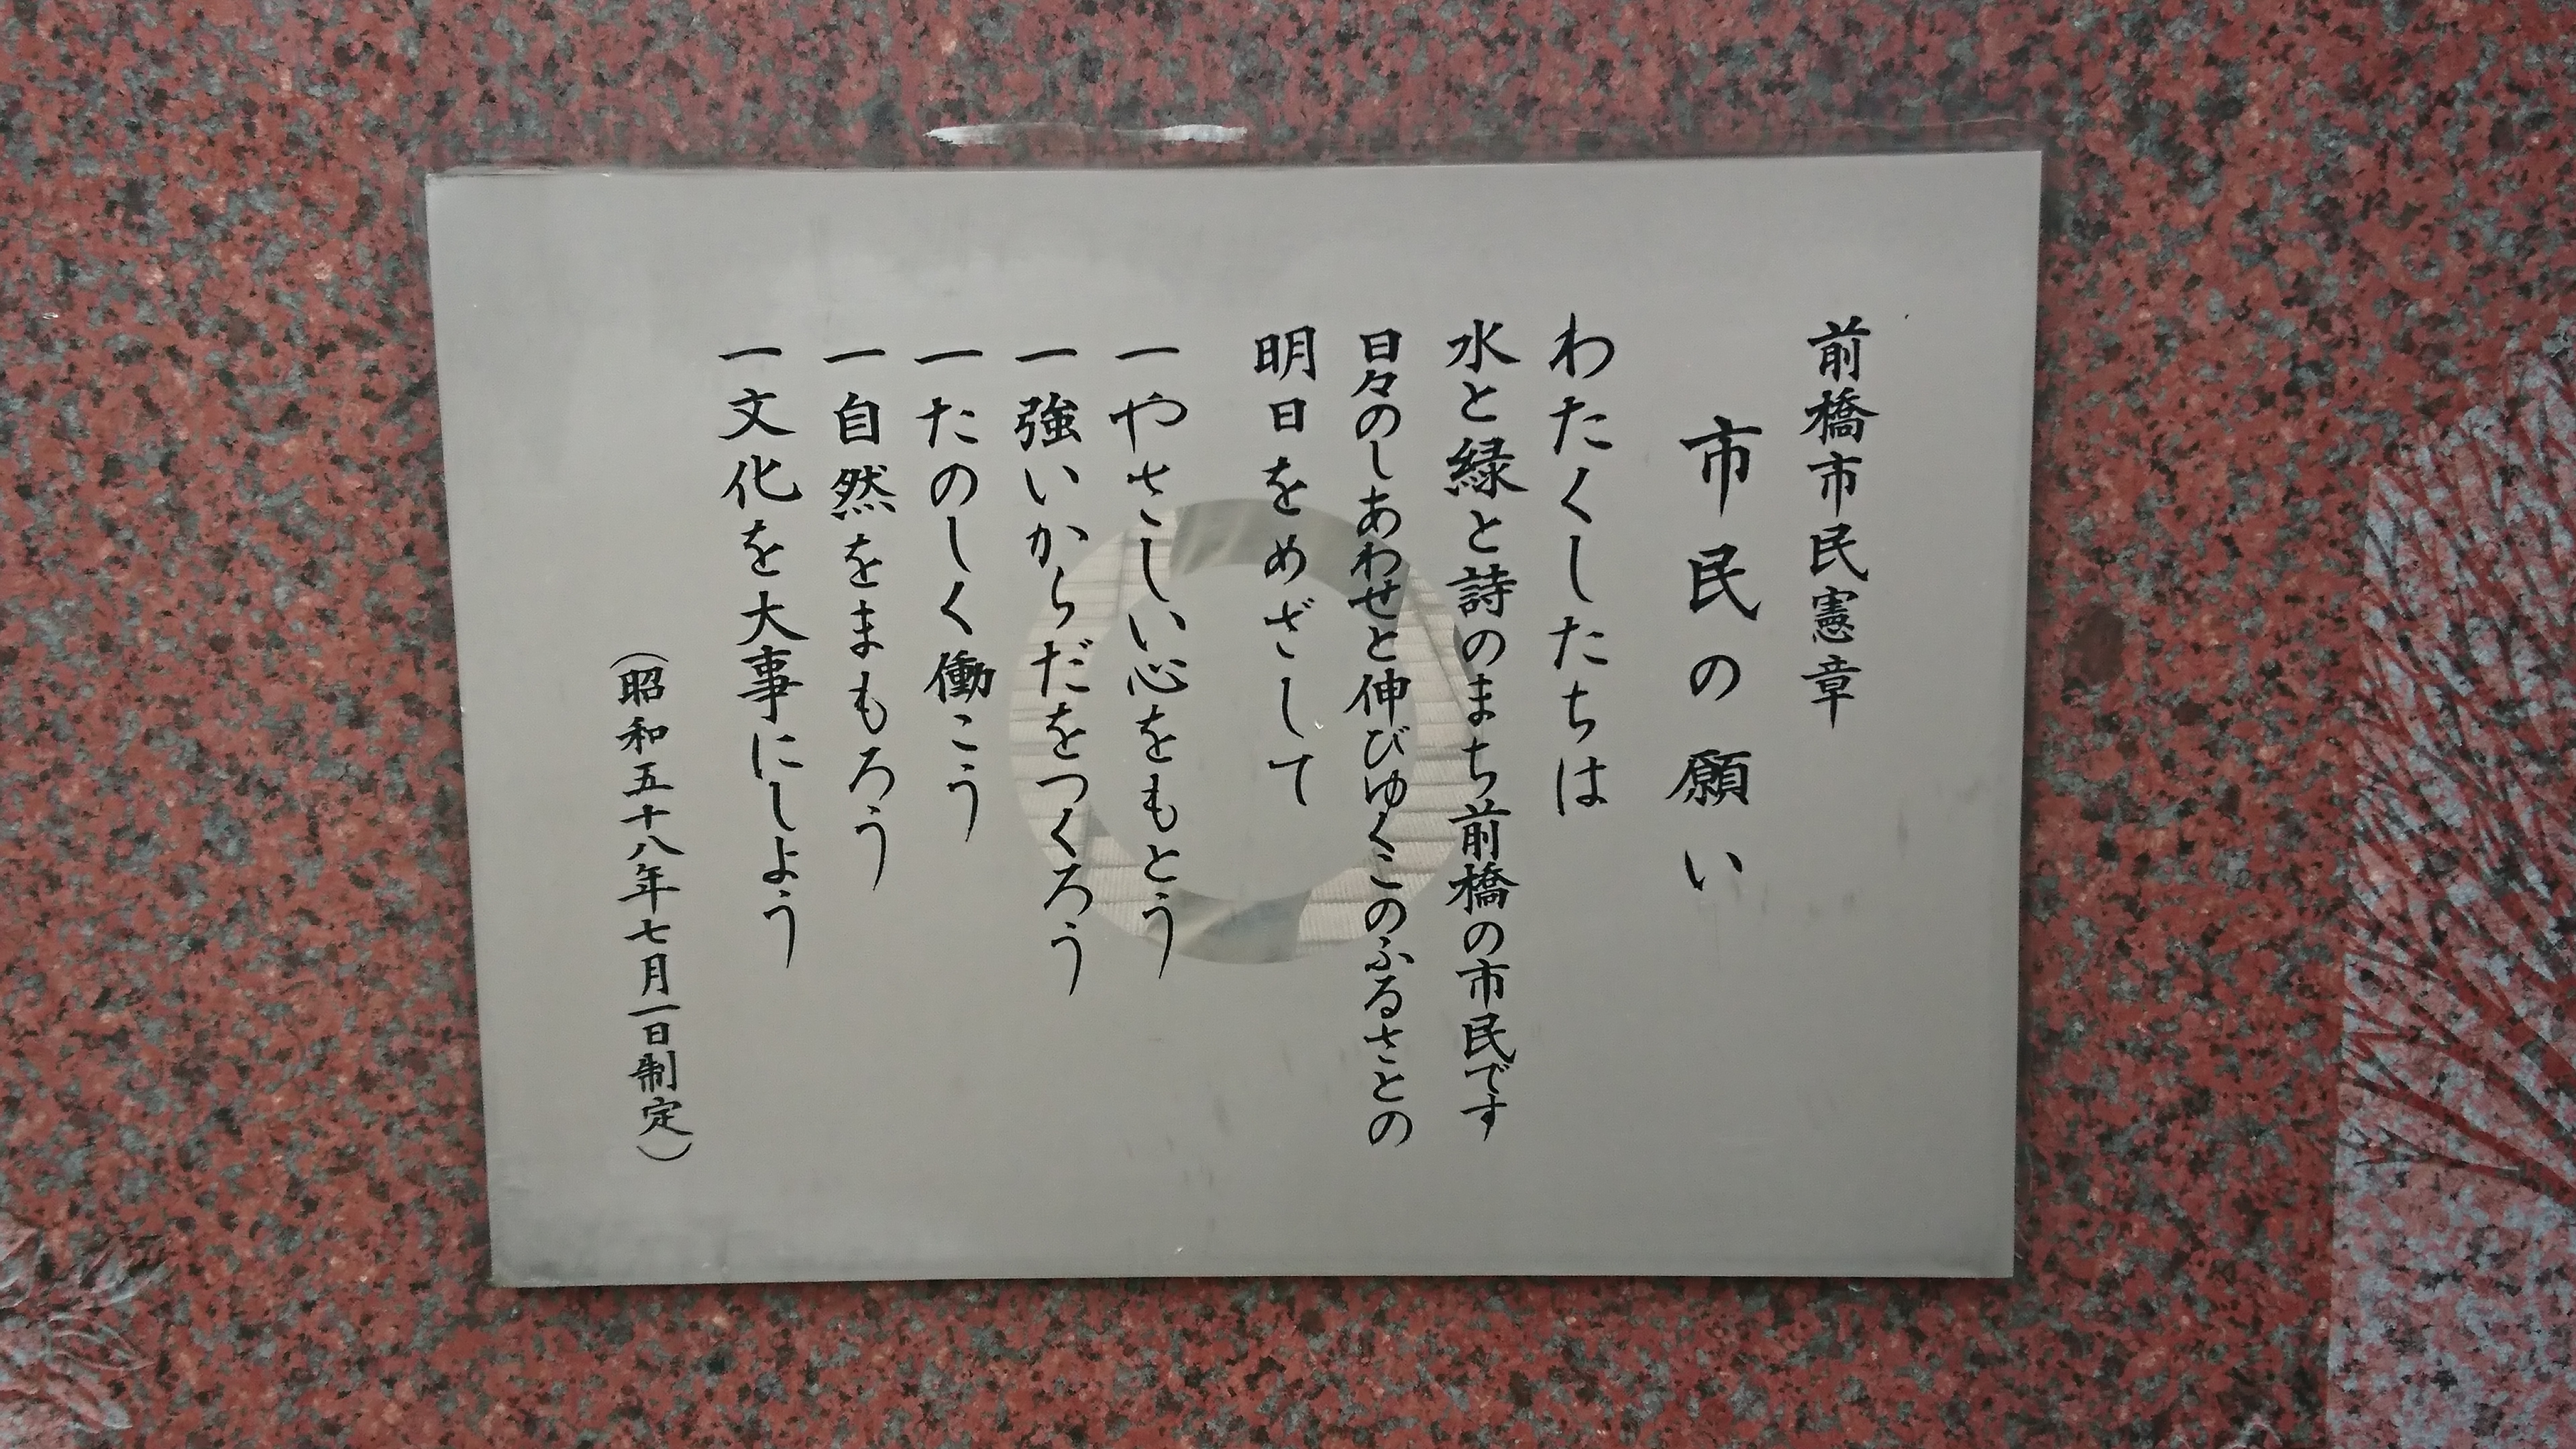 前橋市民憲章
市民の願い
わたくしたちは
水と緑と詩のまち前橋の市民です
日々のしあわせと伸びゆくこのふるさとの
明日をめざして
一やさしい心をもとう
一強いからだをつくろう
一たのしく働こう
一自然をまもろう
一文化を大事にしよう
（昭和五十八年七月一日制定）